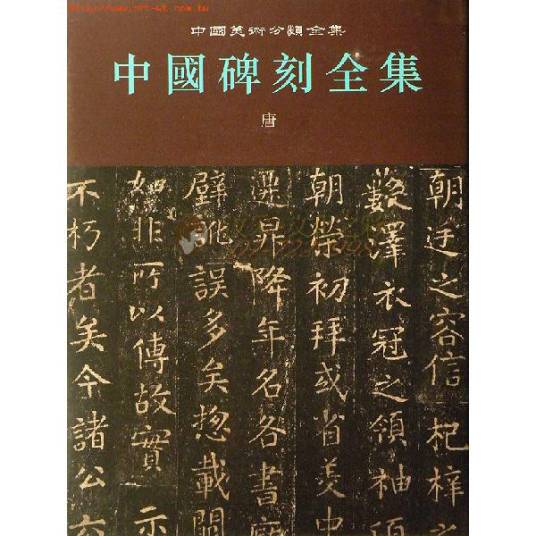 中國美術分類全集
中國碑刻全集
唐
朝廷之容信杞梓之
藪澤衣冠之領袖
朝榮初拜或省美中
遷昇降年名各書廳
壁訛誤多矣揔載闕
如非所以傳故實示
不朽者矣今諸公六